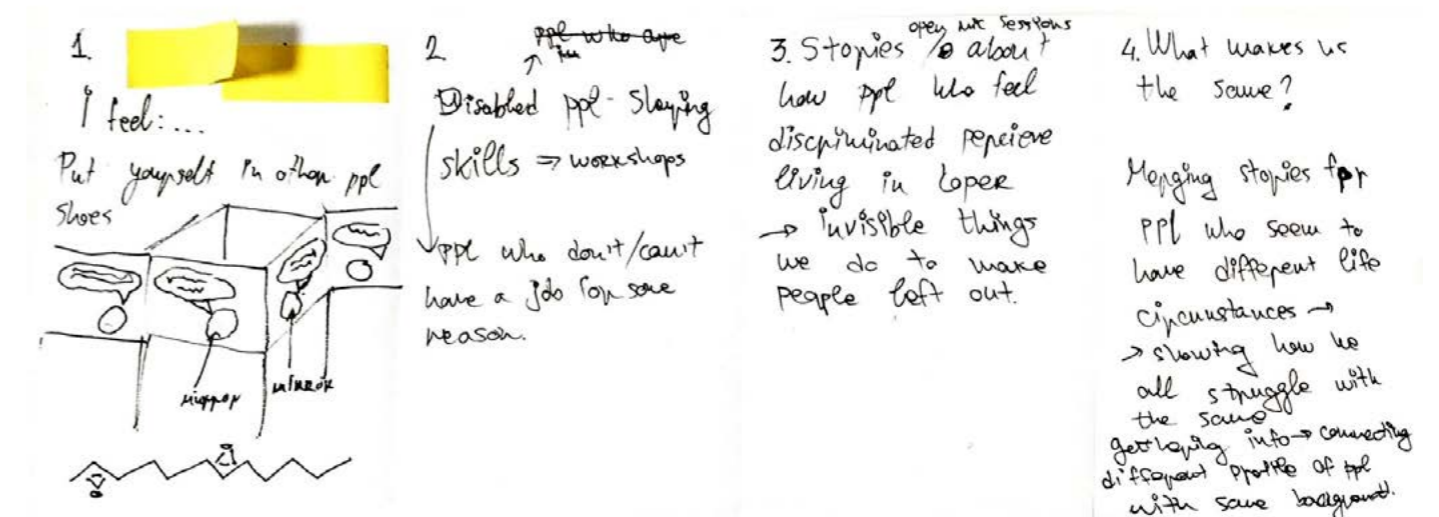 1.
I feel:...
Put yourself in other ppl
shoes
mirror
mirror
2
~~ppl who are~~
in
Disabled ppl - Sharing
skills => workshops
ppl who don't/can't
have a job for some
reason.
open mic sessions
3. Stories / about
how ppl who feel
discriminated percieve
living in
→ invisible things
we do to make
people left out.
4. What makes us
the same?
Merging stories for
ppl who seem to
have different life
circumstances →
→ showing how we
all struggle with
the same
gethering info → connecting
different profile of ppl
with same background.